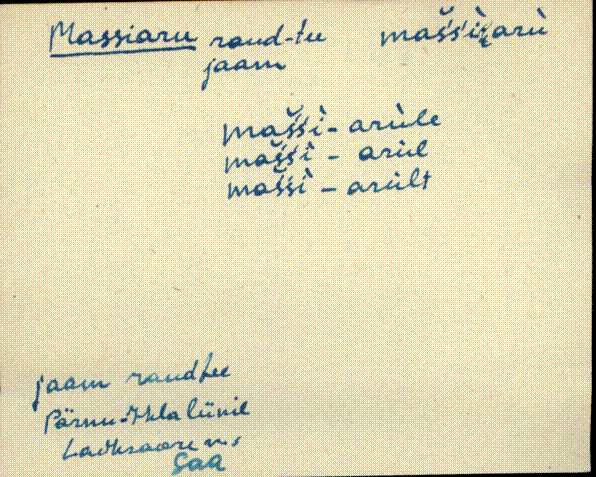 Massiaru raud-tee mašši̬arù
jaam
mašśì - arùle
mašśì - arùl
mašśì - arùlt
jaam raudtee
Pärnu-Ikla liinil
Laiksaare v.
Saa